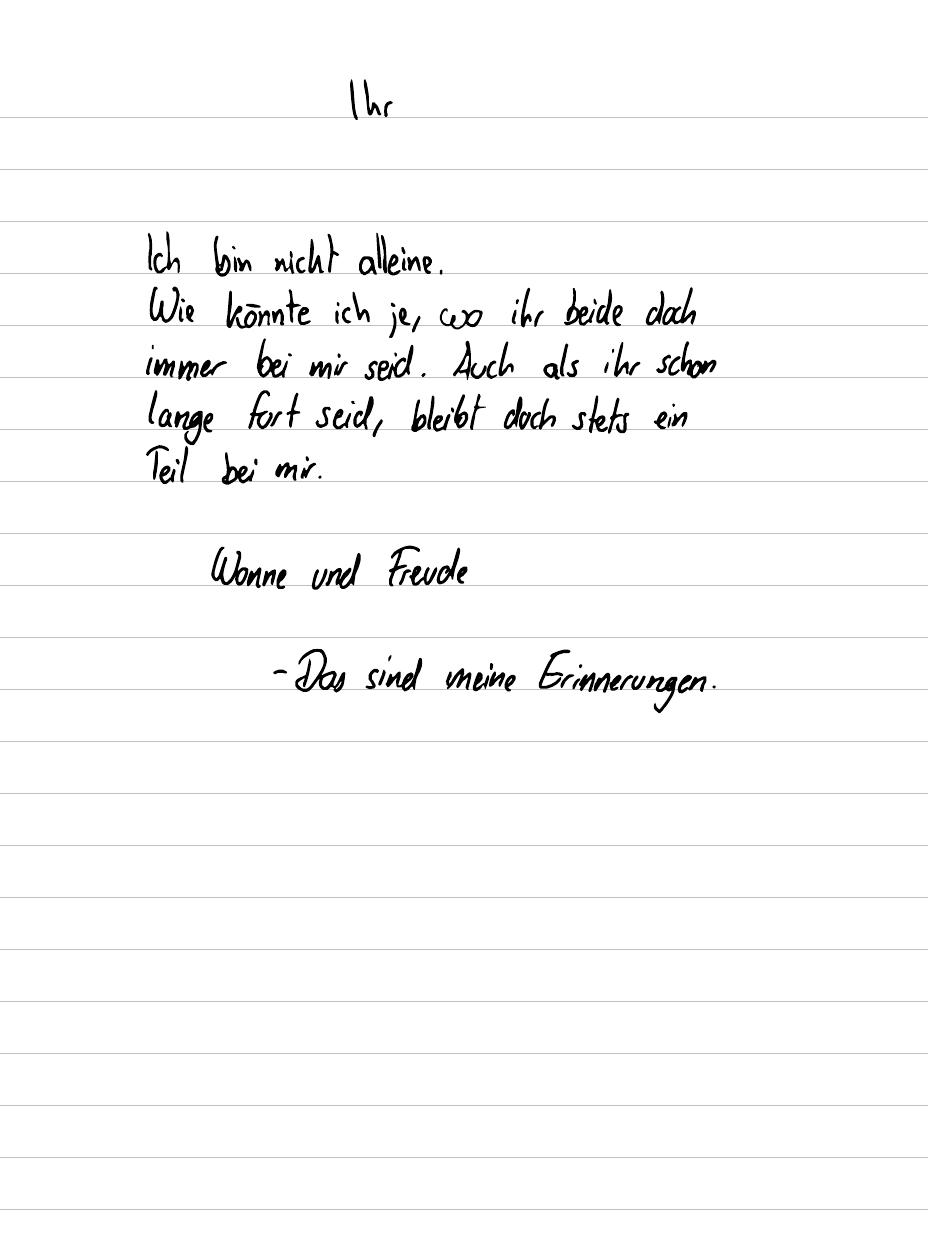 Ihr
Ich bin nicht alleine.
Wie könnte ich je, wo ihr beide doch
immer bei mir seid. Auch als ihr schon
lange fort seid, bleibt doch stets ein
Teil bei mir.
Wonne und Freude
- Das sind meine Erinnerungen.